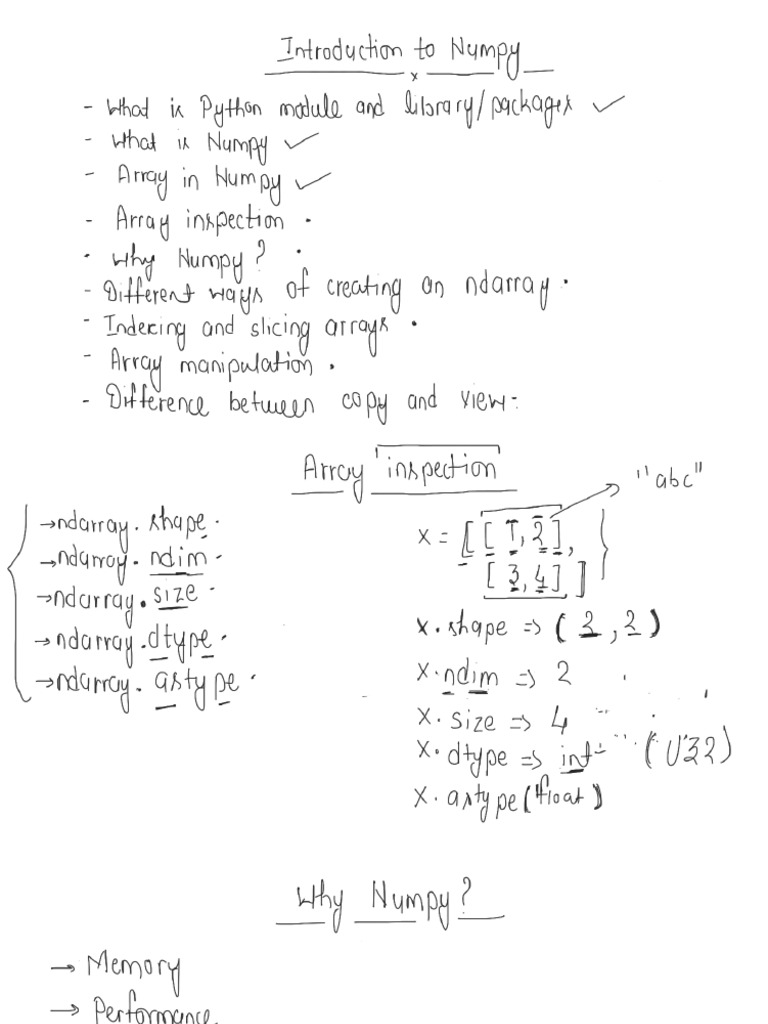 Introduction to Numpy
- What is Python module and library/packages ✓
- What is Numpy ✓
- Array in Numpy ✓
- Array inspection .
- Why Numpy? .
- Different ways of creating an ndarray .
- Indexing and slicing arrays .
- Array manipulation .
- Difference between copy and view:
Array "inspection"
→ ndarray. shape.
→ ndarray. ndim.
→ ndarray. size.
→ ndarray. dtype.
→ ndarray. astype.
"abc"
x = [[1, 2],
[3, 4]]
x. shape => (2, 2)
x. ndim => 2
x. size => 4
x. dtype => int (U32)
x. astype(float)
Why Numpy?
→ Memory
→ Performance